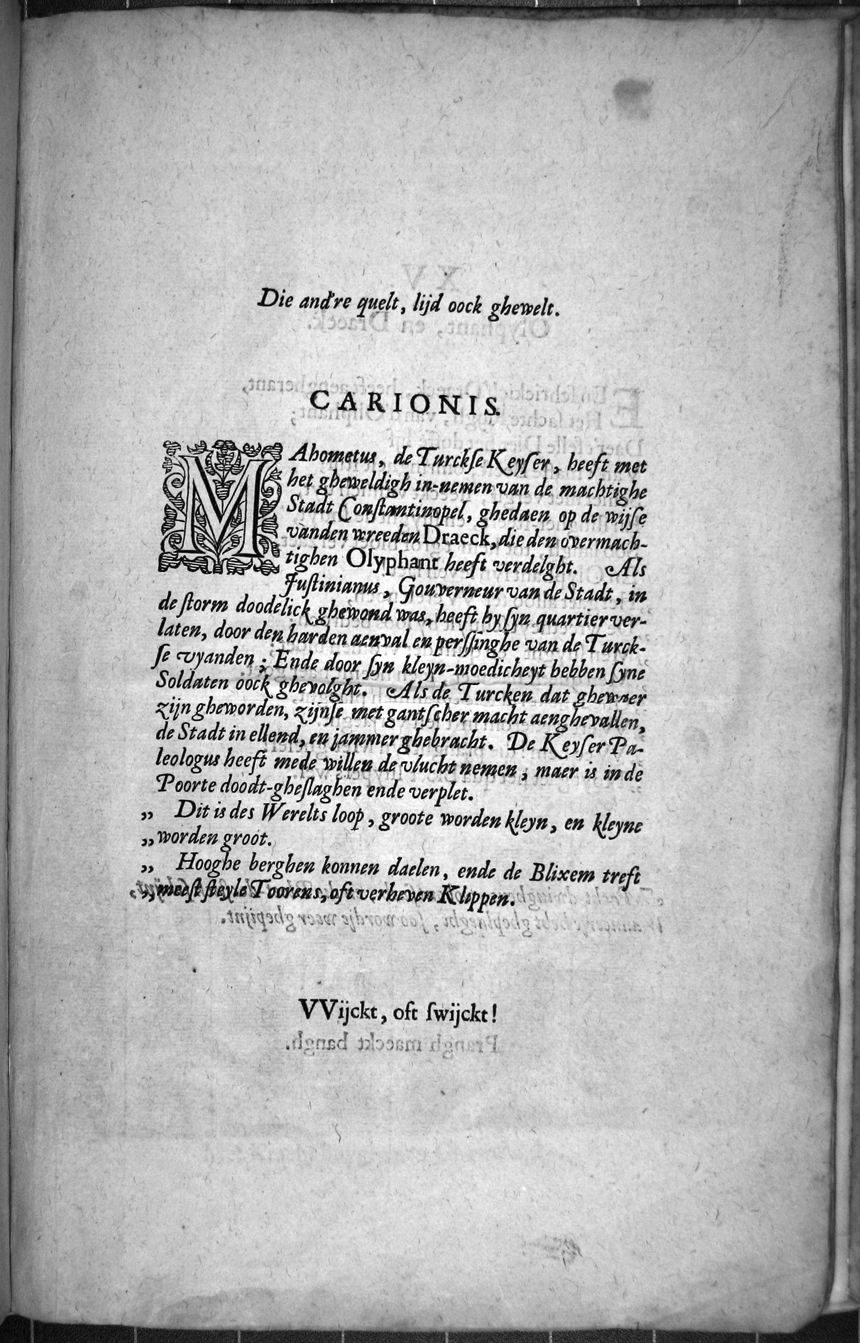 Die and're quelt, lijd oock ghewelt.
CARIONIS.
MAhometus, de Turckſe Keyſer, heeft met
het gheweldigh in-nemen van de machtighe
Stadt Conſtantinopel, ghedaen op de wijſe
vanden wreeden Draeck, die den overmach-
tighen Olyphant heeft verdelght. Als
Juſtinianus, Gouverneur van de Stadt, in
de ſtorm doodelick ghewond was, heeft hy ſyn quartier ver-
laten, door den harden aenval en perſſinghe van de Turck-
ſe vyanden; Ende door ſyn kleyn-moedicheyt hebben ſyne
Soldaten oock ghevolght. Als de Turcken dat ghewaer
zijn gheworden, zijnſe met gantſcher macht aenghevallen,
de Stadt in ellend, en jammer ghebracht. De Keyſer Pa-
leologus heeft mede willen de vlucht nemen, maer is in de
Poorte doodt-gheſlaghen ende verplet.
„ Dit is des Werelts loop, groote worden kleyn, en kleyne
„ worden groot.
„ Hooghe berghen konnen daelen, ende de Blixem treft
„ meeſt ſteyle Toorens, oft verheven Klippen.
VVijckt, oft ſwijckt!